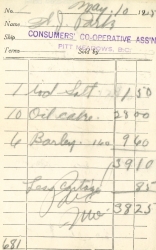 No. May 10 192
M
CONSUMERS' CO-OPERATIVE ASS'N
Address PITT MEADOWS, B.C.
Terms Sold by
1 Salt 1 50
10 Oil cake 28 00
6 Barley 160 9 60
39 10
Less 85
38 25
681